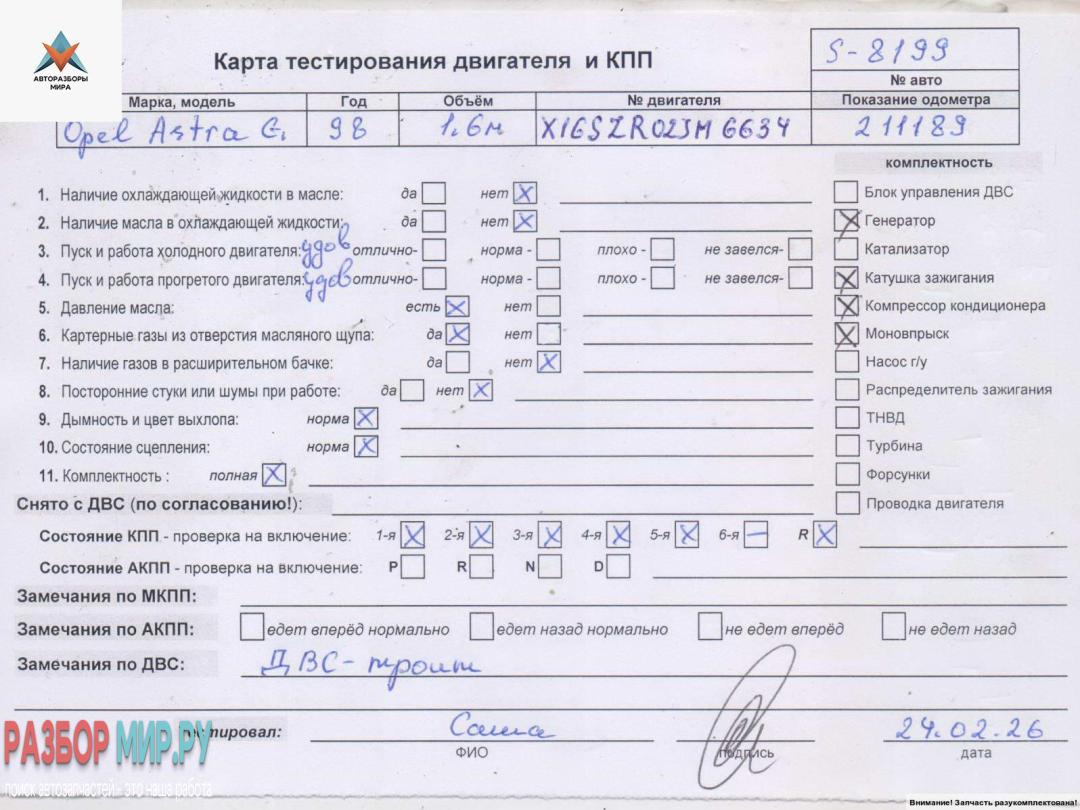 АВТОРАЗБОРЫ
МИРА
Карта тестирования двигателя и КПП
S-8199
№ авто
Марка, модель Год Объём № двигателя Показание одометра
Opel Astra G. 98 1.6м X16SZR02JM6634 211189
комплектность
1. Наличие охлаждающей жидкости в масле: да нет X
Блок управления ДВС
2. Наличие масла в охлаждающей жидкости: да нет X
X Генератор
3. Пуск и работа холодного двигателя: удов отлично- норма - плохо - не завелся-
Катализатор
4. Пуск и работа прогретого двигателя: удов отлично- норма - плохо - не завелся-
X Катушка зажигания
5. Давление масла: есть X нет
X Компрессор кондиционера
6. Картерные газы из отверстия масляного щупа: да X нет
X Моновпрыск
7. Наличие газов в расширительном бачке: да нет X
Насос г/у
8. Посторонние стуки или шумы при работе: да нет X
Распределитель зажигания
9. Дымность и цвет выхлопа: норма X
ТНВД
10. Состояние сцепления: норма X
Турбина
11. Комплектность : полная X
Форсунки
Снято с ДВС (по согласованию!):
Проводка двигателя
Состояние КПП - проверка на включение: 1-я X 2-я X 3-я X 4-я X 5-я X 6-я – R X
Состояние АКПП - проверка на включение: P R N D
Замечания по МКПП:
Замечания по АКПП: едет вперёд нормально едет назад нормально не едет вперёд не едет назад
Замечания по ДВС: ДВС - троит
тировал: Саша 24.02.26
ФИО подпись дата
РАЗБОР МИР.РУ
поиск автозапчастей - это наша работа
Внимание! Запчасть разукомплектована!